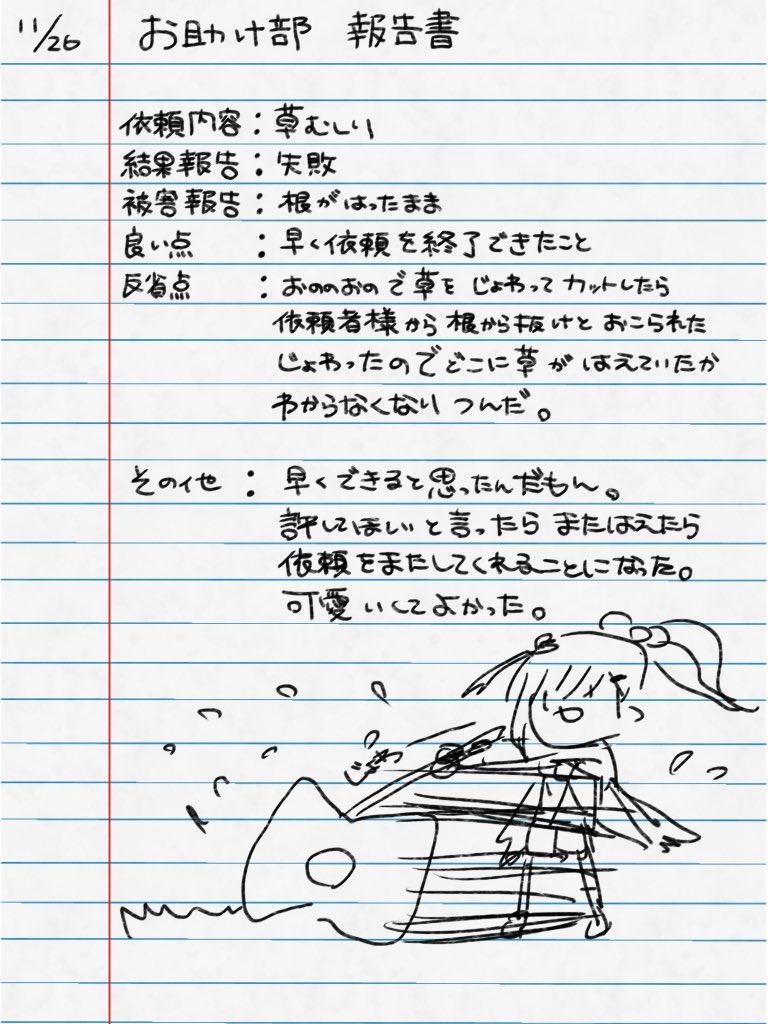 11/26 お助け部 報告書
依頼内容：草むしり
結果報告：失敗
被害報告：根がはったまま
良い点：早く依頼を終了できたこと
反省点：おののおので草をじょわってカットしたら
依頼者様から根から抜けとおこられた
じょわったのでどこに草がはえていたか
わからなくなりつんだ。
その他：早くできると思ったんだもん。
許してほしいと言ったらまたはえたら
依頼をまたしてくれることになった。
可愛いくてよかった。
じょわっ